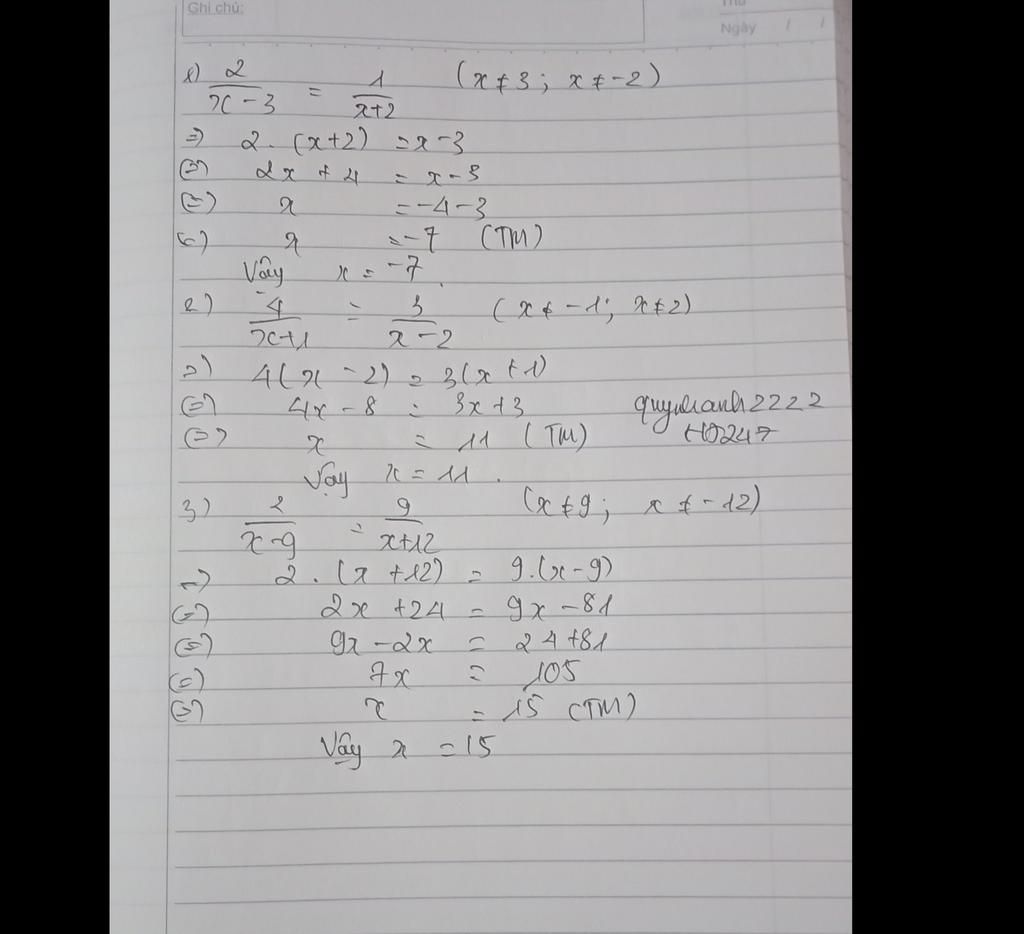 Ghi chú:
Thứ
Ngày / /
1) 2/(x-3) = 1/(x+2) (x ≠ 3; x ≠ -2)
=> 2.(x+2) = x-3
<=> 2x + 4 = x-3
<=> x = -4-3
<=> x = -7 (TM)
Vậy x = -7.
2) 4/(x+1) = 3/(x-2) (x ≠ -1; x ≠ 2)
=> 4(x-2) = 3(x+1)
<=> 4x-8 = 3x+3
<=> x = 11 (TM)
Vậy x = 11.
3) 2/(x-9) = 9/(x+12) (x ≠ 9; x ≠ -12)
=> 2.(x+12) = 9.(x-9)
<=> 2x+24 = 9x-81
<=> 9x-2x = 24+81
<=> 7x = 105
<=> x = 15 (TM)
Vậy x = 15